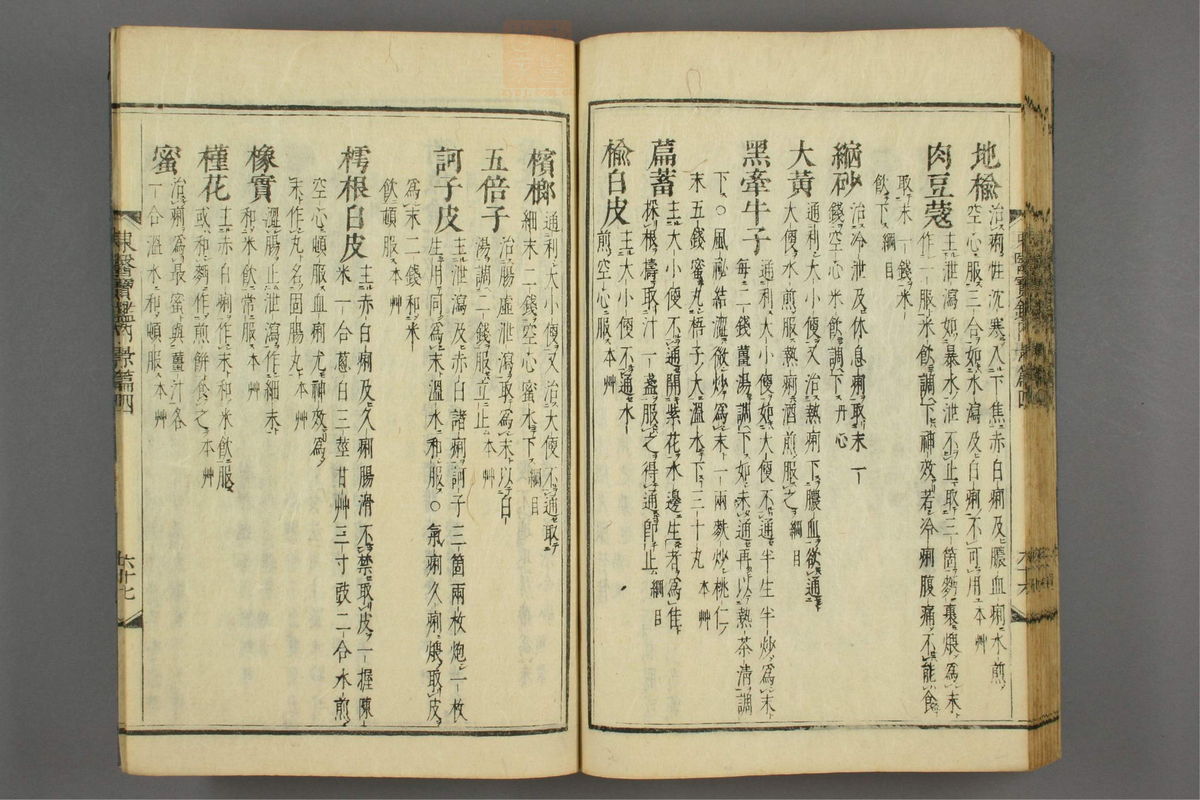 地楡 治痢性沈寒入下焦赤白痢及膿血痢水煎
空心服三合如水瀉及白痢不可用本艸
肉豆蔲 主泄瀉如暴水泄不止取三箇麪裹煨爲末
作一服米飮調下神效若冷痢腹痛不能食
取末一錢米
飮下綱目
硇砂 治冷泄及休息痢取末一
錢空心米飮調下丹心
大黃 通利大小便又治熱痢下膿血欲通
大便水煎服熱痢酒煎服之綱目
黑牽牛子 通利大小便如大便不通半生半炒爲末
每二錢薑湯調下如未通再以熱茶淸調
下○風祕結澁微炒爲末一兩麩炒桃仁
末五錢蜜丸梧子大溫水下三十丸本艸
萹蓄 主大小便不通開紫花水邊生者爲佳
採根擣取汁一盞服之得通卽止綱目
楡白皮 主大小便不通水
煎空心服本艸
六十六
檳榔 通利大小便又治大便不通取
細末二錢空心蜜水下綱目
五倍子 治腸虛泄瀉取爲末以白
湯調二錢服立止本艸
訶子皮 主泄瀉及赤白諸痢訶子三箇兩枚炮一枚
生用同爲末溫水和服○氣痢久痢煨取皮
爲末二錢和米
飮頓服本艸
樗根白皮 主赤白痢及久痢腸滑不禁取皮一握陳
米一合蔥白三莖甘艸三寸豉二合水煎
空心頓服血痢尤神效爲
末作丸名固腸丸本艸
橡實 澁腸止泄瀉作細末
和米飮常服本艸
槿花 主赤白痢作末和米飮服
或和麪作煎餠食之本艸
蜜 治痢爲最蜜與薑汁各
一合溫水和頓服本艸
東醫寶鑑內景篇四
六十七